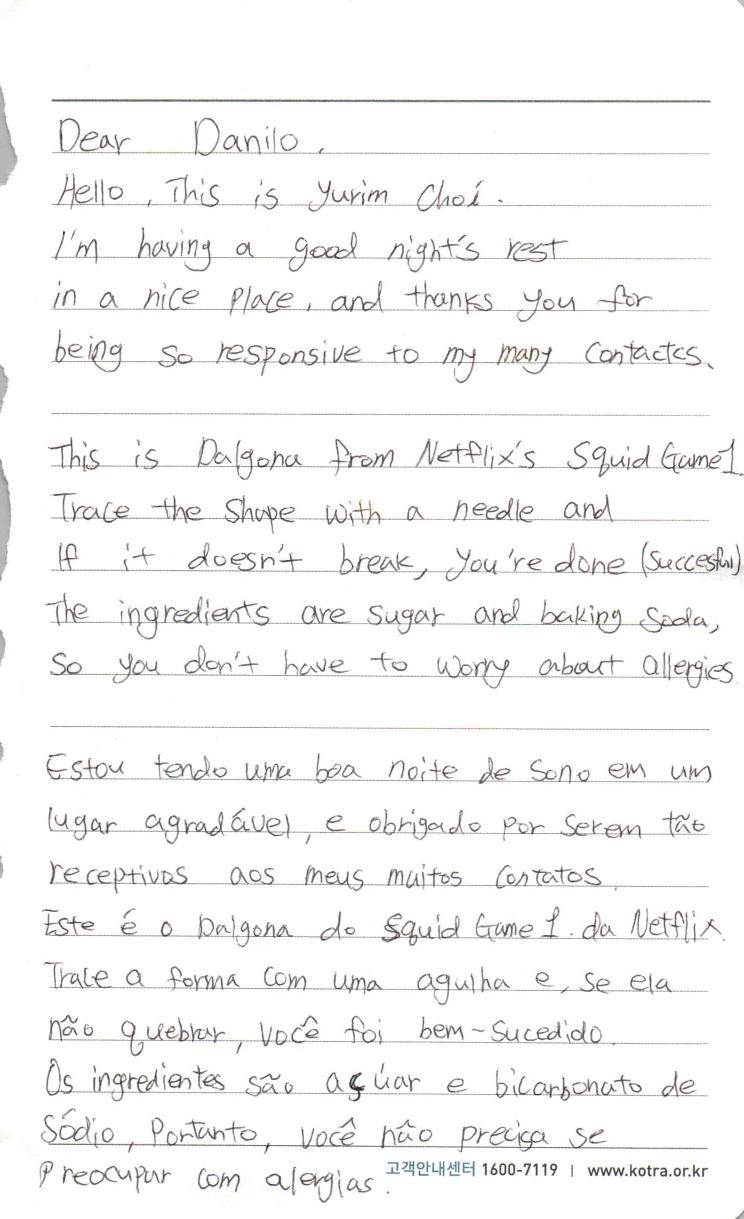 Dear Danilo,
Hello, This is Yurim Choi.
I'm having a good night's rest
in a nice place, and thanks you for
being so responsive to my many contactcs.
This is Dalgona from Netflix's Squid Game1
Trace the shape with a needle and
If it doesn't break, you're done (succesful)
The ingredients are sugar and baking soda,
So you don't have to worry about allergies
Estou tendo uma boa noite de sono em um
lugar agradável, e obrigado por serem tão
receptivos aos meus muitos contatos.
Este é o Dalgona do Squid Game 1. da Netflix.
Trace a forma com uma agulha e, se ela
não quebrar, você foi bem-sucedido.
Os ingredientes são açúar e bicarbonato de
Sódio, Portanto, você não precisa se
Preocupar com alergias.
고객안내센터 1600-7119 | www.kotra.or.kr